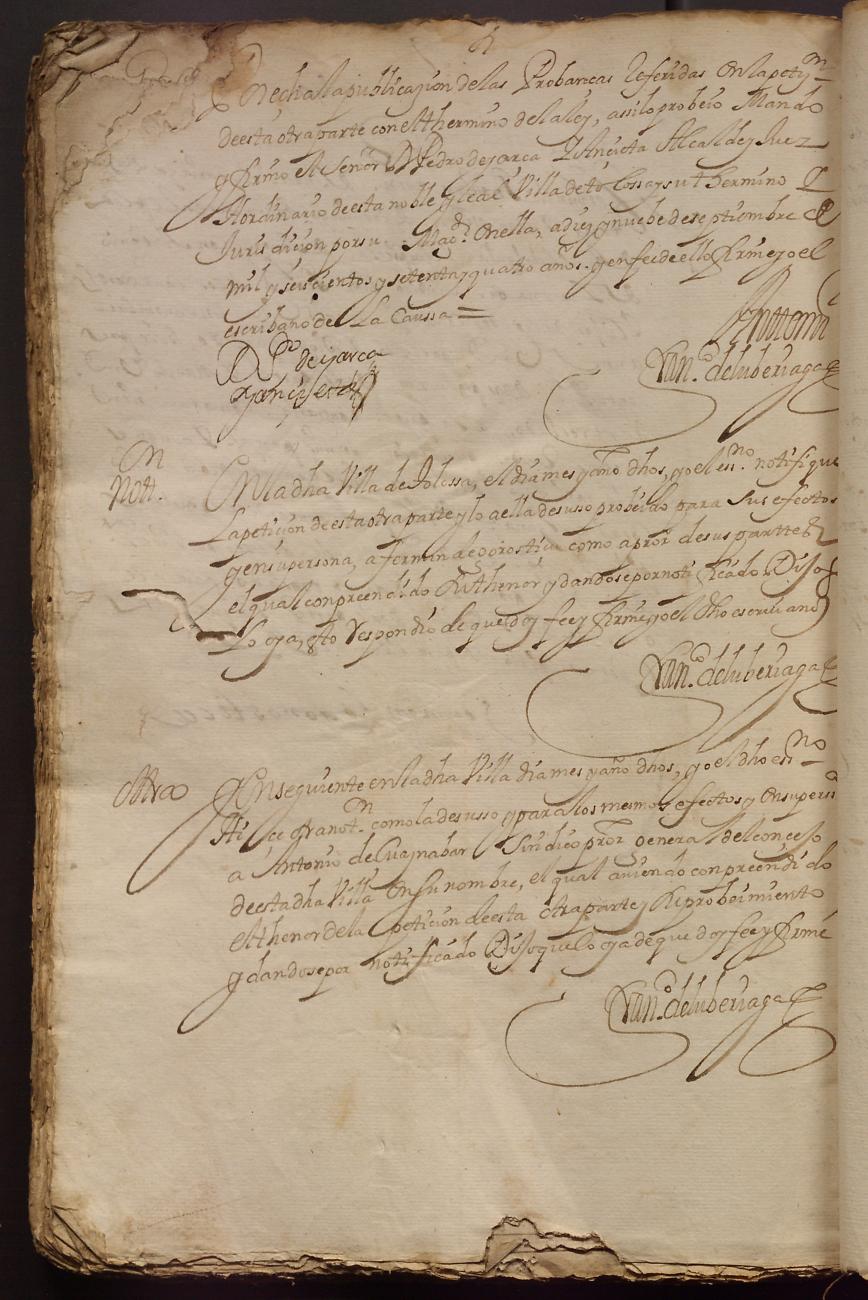 Hecha la publicazion de las Probancas Referidas en la petiz.on
de esta otra parte con el thermino de la ley, assi lo probeio Mando
y firmo El Señor D Pedro de yarca Alcalde y Juez
Hordinario de esta noble y leal Villa de tolossa y su thermino
Jurisdicion por su Mag.d en ella, a diez y nuebe de septiembre de
mil y seiscientos y setenta y quatro años. y en fee de ello firme yo el
escribano de La Caussa =
D P.o de yarca
Antt.o mi
Fran.co de luberiaga
On
Nott.
En la dha Villa de tolossa, el dia mes y año dhos, yo el ess.no notifique
La peticion de esta otra parte y lo a ella de susso probeido para sus efectos
y en su persona, a fermin de gorostieta como a pror de sus partes
el qual conpreendido su thenor y dandose por notificado Dijo
Lo oya, esto Respondio de que doy fee y firme yo el dho escriuano
Fran.co de luberiaga
Ottra
y Consequiente en la dha Villa dia mes y año dhos, yo el dho ess.no
Hice otra not.on como la de susso y para los mesmos efectos y en su perss.a
a Antonio de Guajnabar Sindico pror general del concejo
de esta dha Villa en su nombre, el qual auiendo conpreendido
el thenor de la peticion de esta otra parte y su probeimiento
y dandose por notificado Dijo que Lo oya de que doy fee y firme
Fran.co de luberiaga